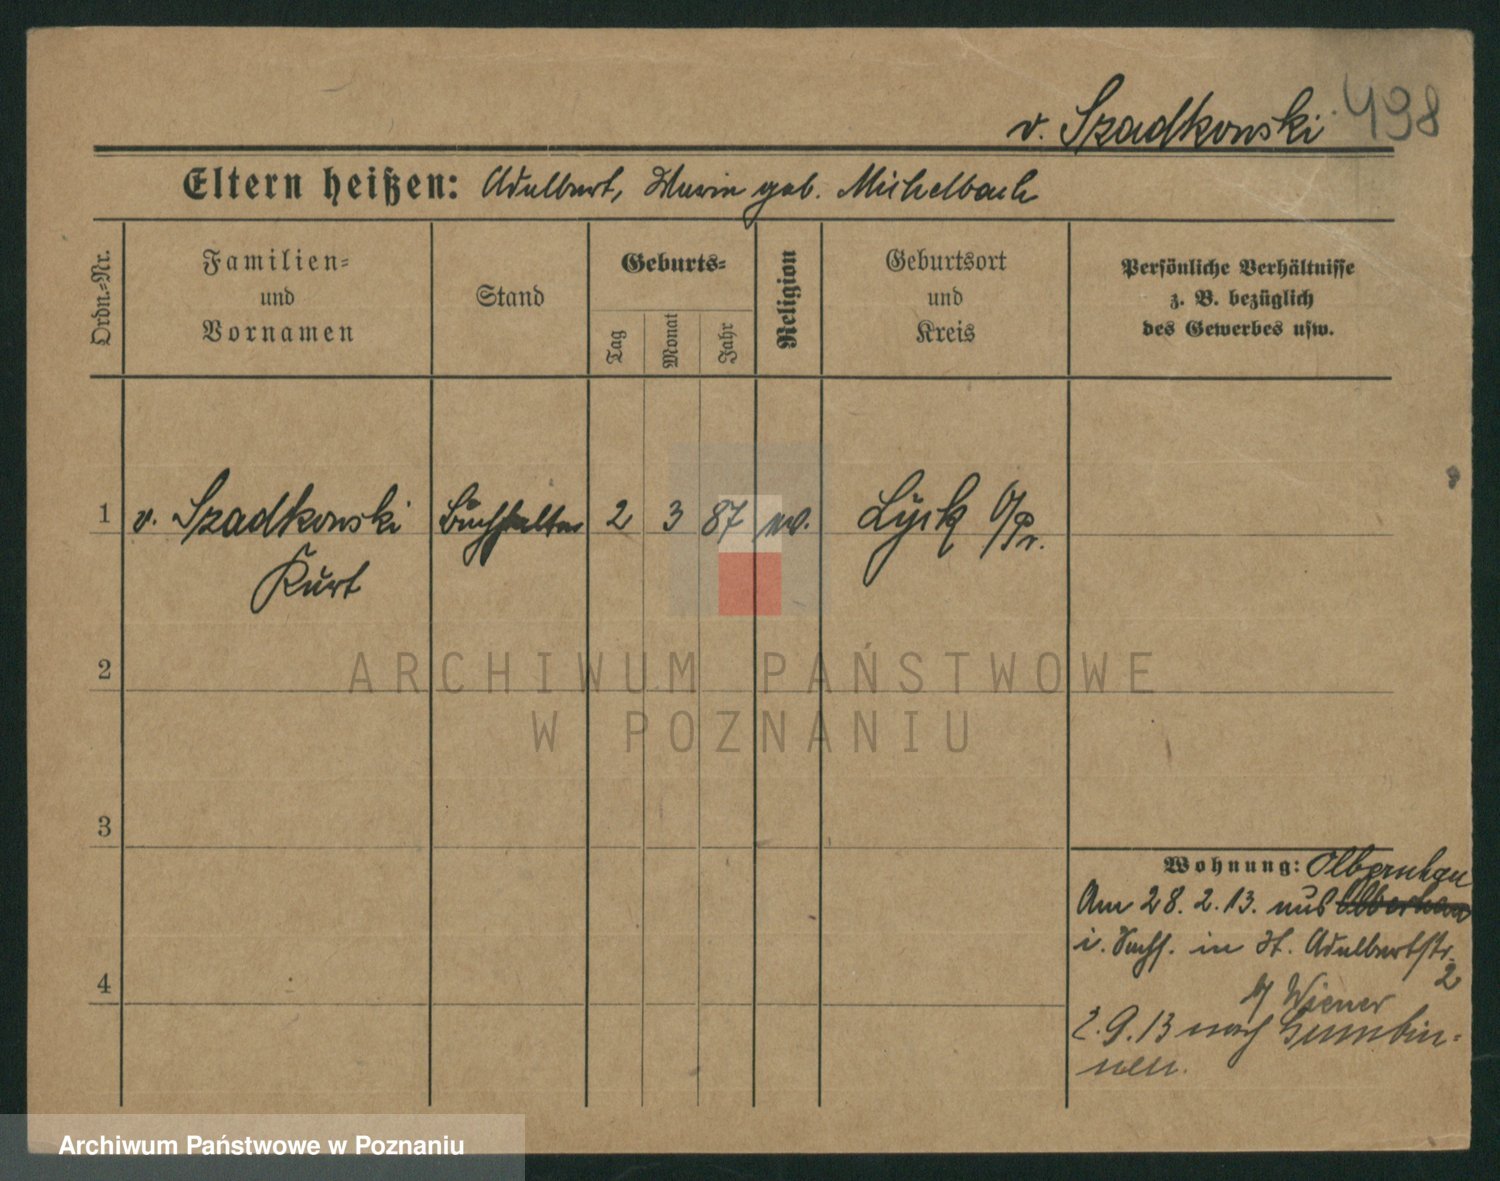 v. Szadkowski 498
Eltern heißen: Adalbert, Marie geb. Michelbach
Ordn.-Nr.
Familien-
und
Vornamen
Stand
Geburts-
Tag
Monat
Jahr
Religion
Geburtsort
und
Kreis
Persönliche Verhältnisse
z. B. bezüglich
des Gewerbes usw.
1 v. Szadkowski Buchhalter 2 3 87 ev. Lyck O/Pr.
Kurt
2
3
4
Wohnung: Olbernhau
Am 28. 2. 13. aus
i. Sachs. in St. Adalbertstr.
2
b/ Wiener
2. 9. 13 nach Gumbin-
nen.
ARCHIWUM PAŃSTWOWE
W POZNANIU
Archiwum Państwowe w Poznaniu